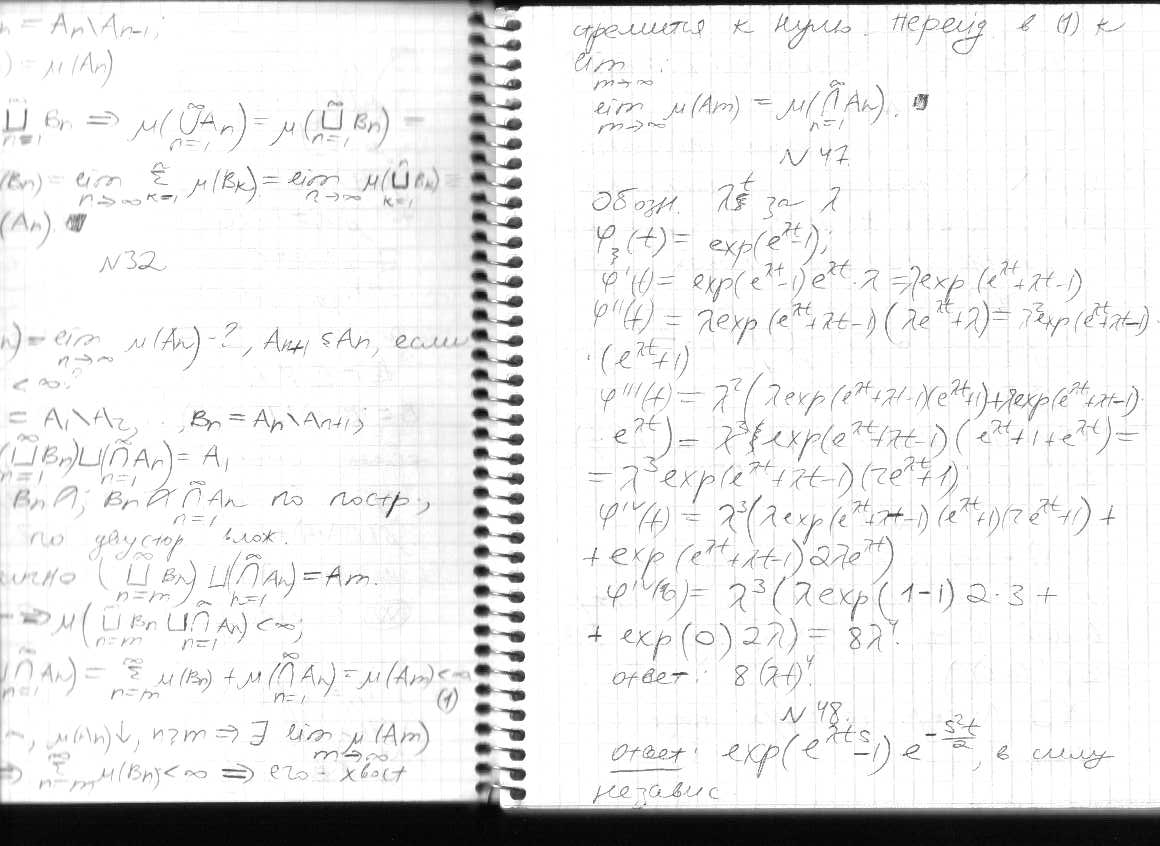 n = An\An-1;
) = μ(An)
⊔ Bn ⇒ μ(∪An) = μ(⊔ Bn) =
n=1 n=1 n=1
(Bn) = lim Σ μ(Bk) = lim μ(⊔ Bk) =
n→∞ k=1 n→∞ k=1
(An).
N32
n) = lim μ(An) - ?, An+1 ⊆ An, если
n→∞
< ∞.
= A1\A2, , Bn = An\An+1;
(⊔ Bn)⊔(∩An) = A1
n=1 n=1
Bn ∩ An по постр.,
n=1
по двустор влож.
(⊔ Bn)⊔(∩An) = Am.
n=m n=1
⇒ μ(⊔ Bn ⊔ ∩ An) < ∞;
n=m n=1
∩ An) = Σ μ(Bn) + μ(∩ An) = μ(Am) < ∞
n=1 n=m n=1 (1)
, μ(An)↓, n≥m ⇒ ∃ lim μ(Am)
m→∞
⇒ Σ μ(Bn) < ∞ ⇒ его - хвост
n=m
стремится к нулю. Перейд в (1) к
lim :
m→∞
lim μ(Am) = μ(∩ An).
m→∞ n=1
N 47
Обозн. λt за λ
φξ(t) = exp(e^λt-1);
φ'(t) = exp(e^λt-1)e^λt·λ = λexp(e^λt+λt-1)
φ''(t) = λexp(e^λt+λt-1)(λe^λt+λ) = λ²exp(e^λt+λt-1)·
·(e^λt+1)
φ'''(t) = λ²(λexp(e^λt+λt-1)(e^λt+1)+λexp(e^λt+λt-1)·
·e^λt) = λ³exp(e^λt+λt-1)(e^λt+1+e^λt) =
= λ³exp(e^λt+λt-1)(2e^λt+1);
φ^IV(t) = λ³(λexp(e^λt+λt-1)(e^λt+1)(2e^λt+1) +
+ exp(e^λt+λt-1)2λe^λt)
φ^IV(0) = λ³(λexp(1-1)2·3 +
+ exp(0)2λ) = 8λ⁴.
ответ: 8(λt)⁴.
N 48.
ответ: exp(e^λts-1)e^-s²t/2, в силу
независ.